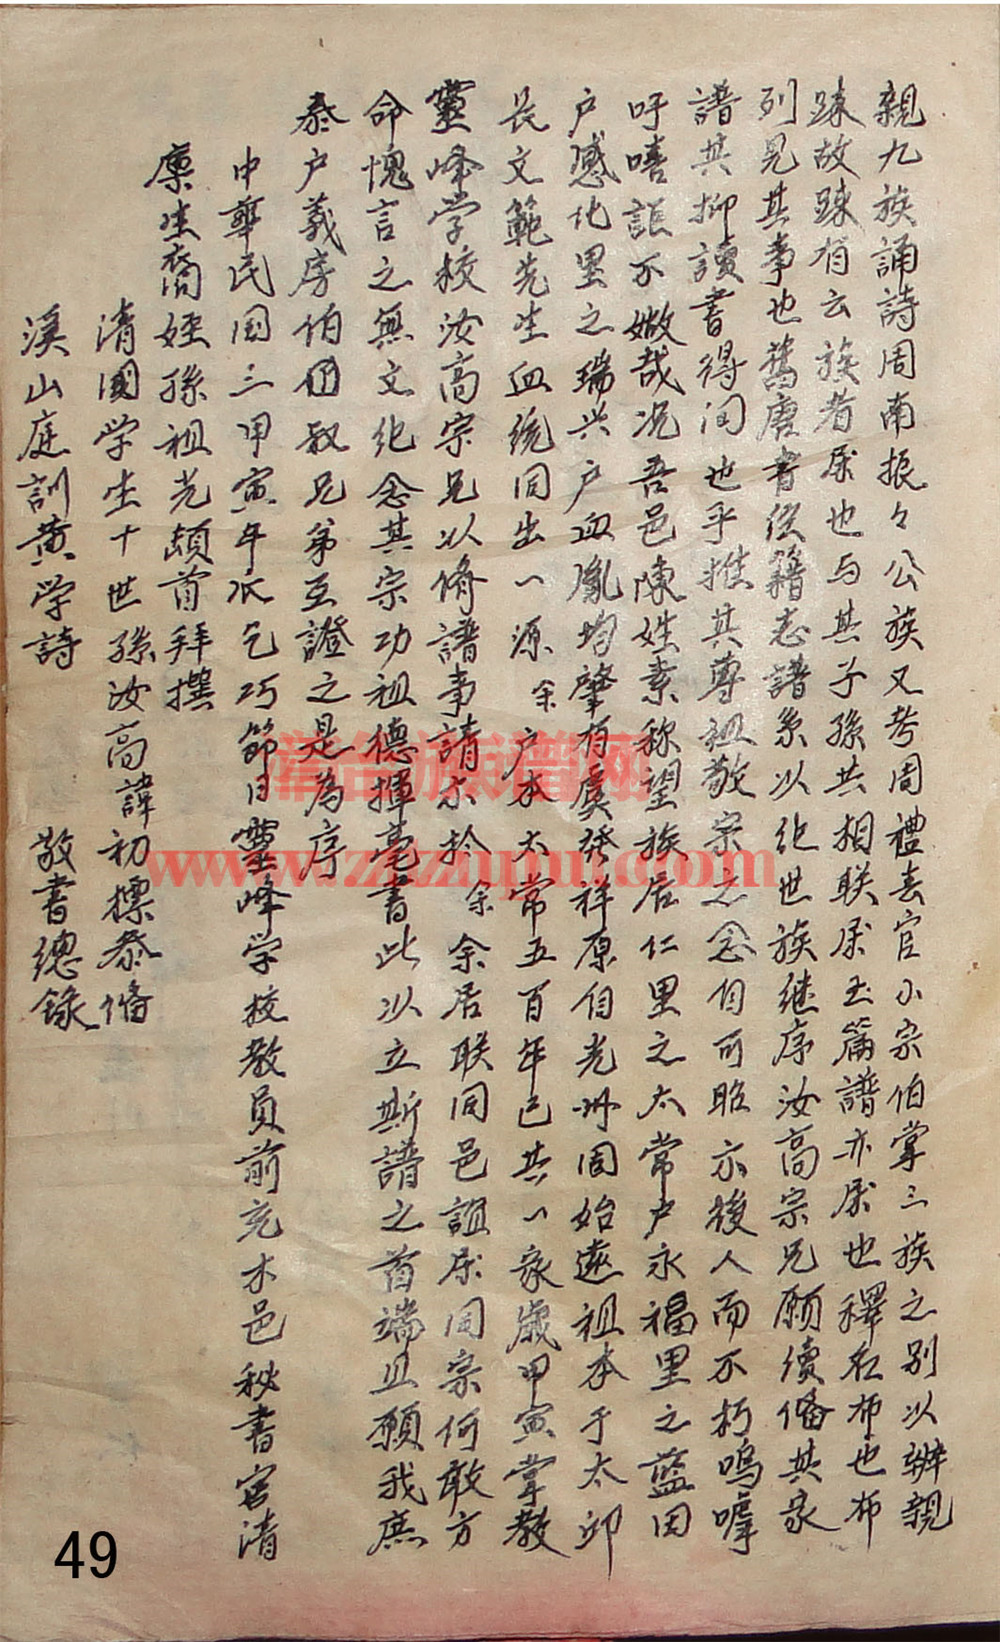 親九族誦詩周南振々公族又考周禮春官小宗伯掌三族之别以辨親
踈故踈有云族者属也与其子孫共相联属玉篇譜亦属也釋名布也布
列見其事也舊唐書经籍志譜系以纪世族继序汝高宗兄願續俻其家
譜其抑讀書得间也乎推其尊祖敬宗之念自可昭示後人而不朽嗚嘑
吁嘻詎不媺哉况吾邑陳姓素称望族居仁里之太常户永福里之蓝田
户感化里之瑞兴户血胤均肇有虞發祥原自光州固始遠祖本于太邱
長文範先生血统同出一源余户本太常五百年已共一家歲甲寅掌教
靈峰学校汝高宗兄以脩譜事請示於余余居联同邑誼属同宗何敢方
命愧言之無文纪念其宗功祖德揮毫書此以立斯譜之首端且願我庶
泰户義房伯田叔兄弟互證之是為序
中華民国三甲寅年瓜乞巧節日靈峰学校教員前充本邑秘書官清
廩生裔姪孫祖光頓首拜撰
清國学生十世孫汝高諱初標泰脩
溪山庭訓黄学詩 敬書總錄
譚台族譜网
www.zhzupu.com
49